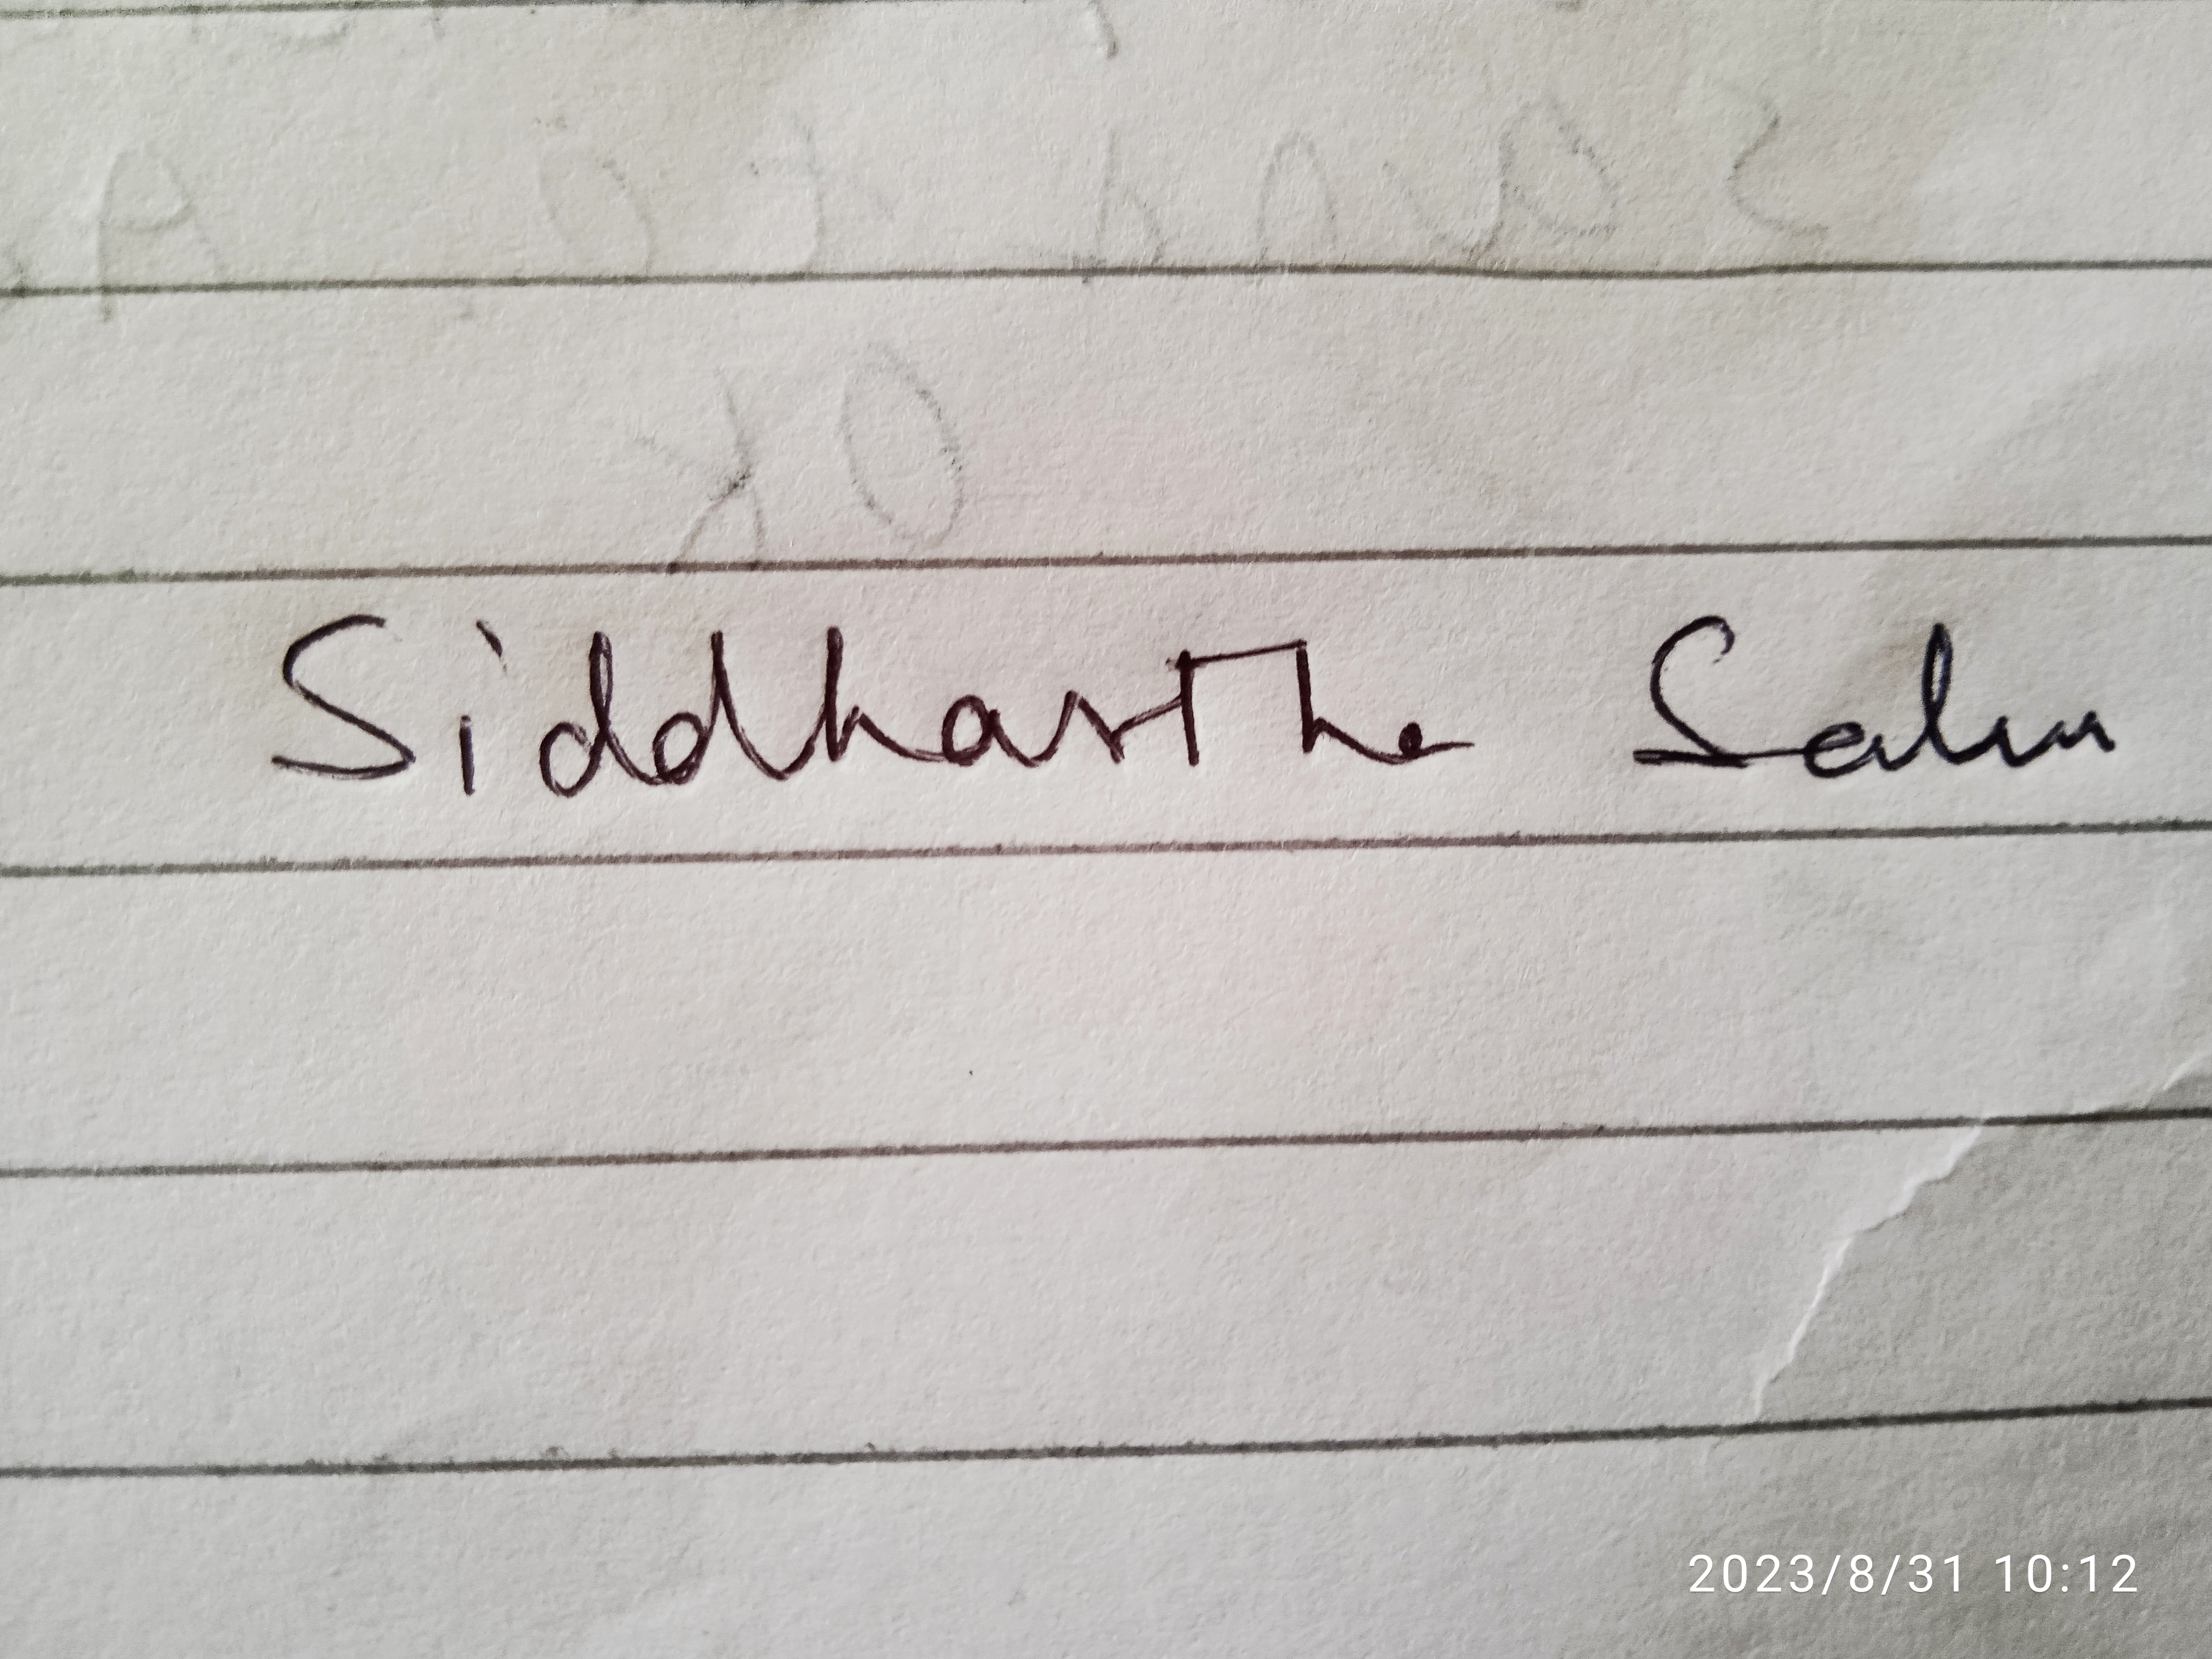 Siddhartha Sahu
2023/8/31 10:12